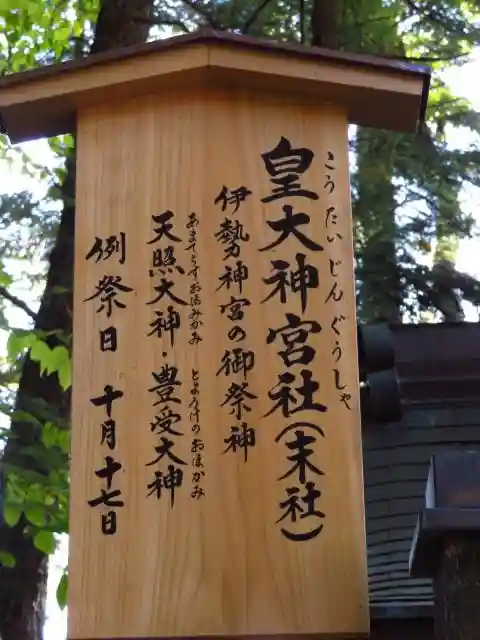 皇大神宮社(末社)
こうたいじんぐうしゃ
伊勢神宮の御祭神
天照大神・豊受大神
あまてらすおほみかみ とようけのおほかみ
例祭日 十月十七日